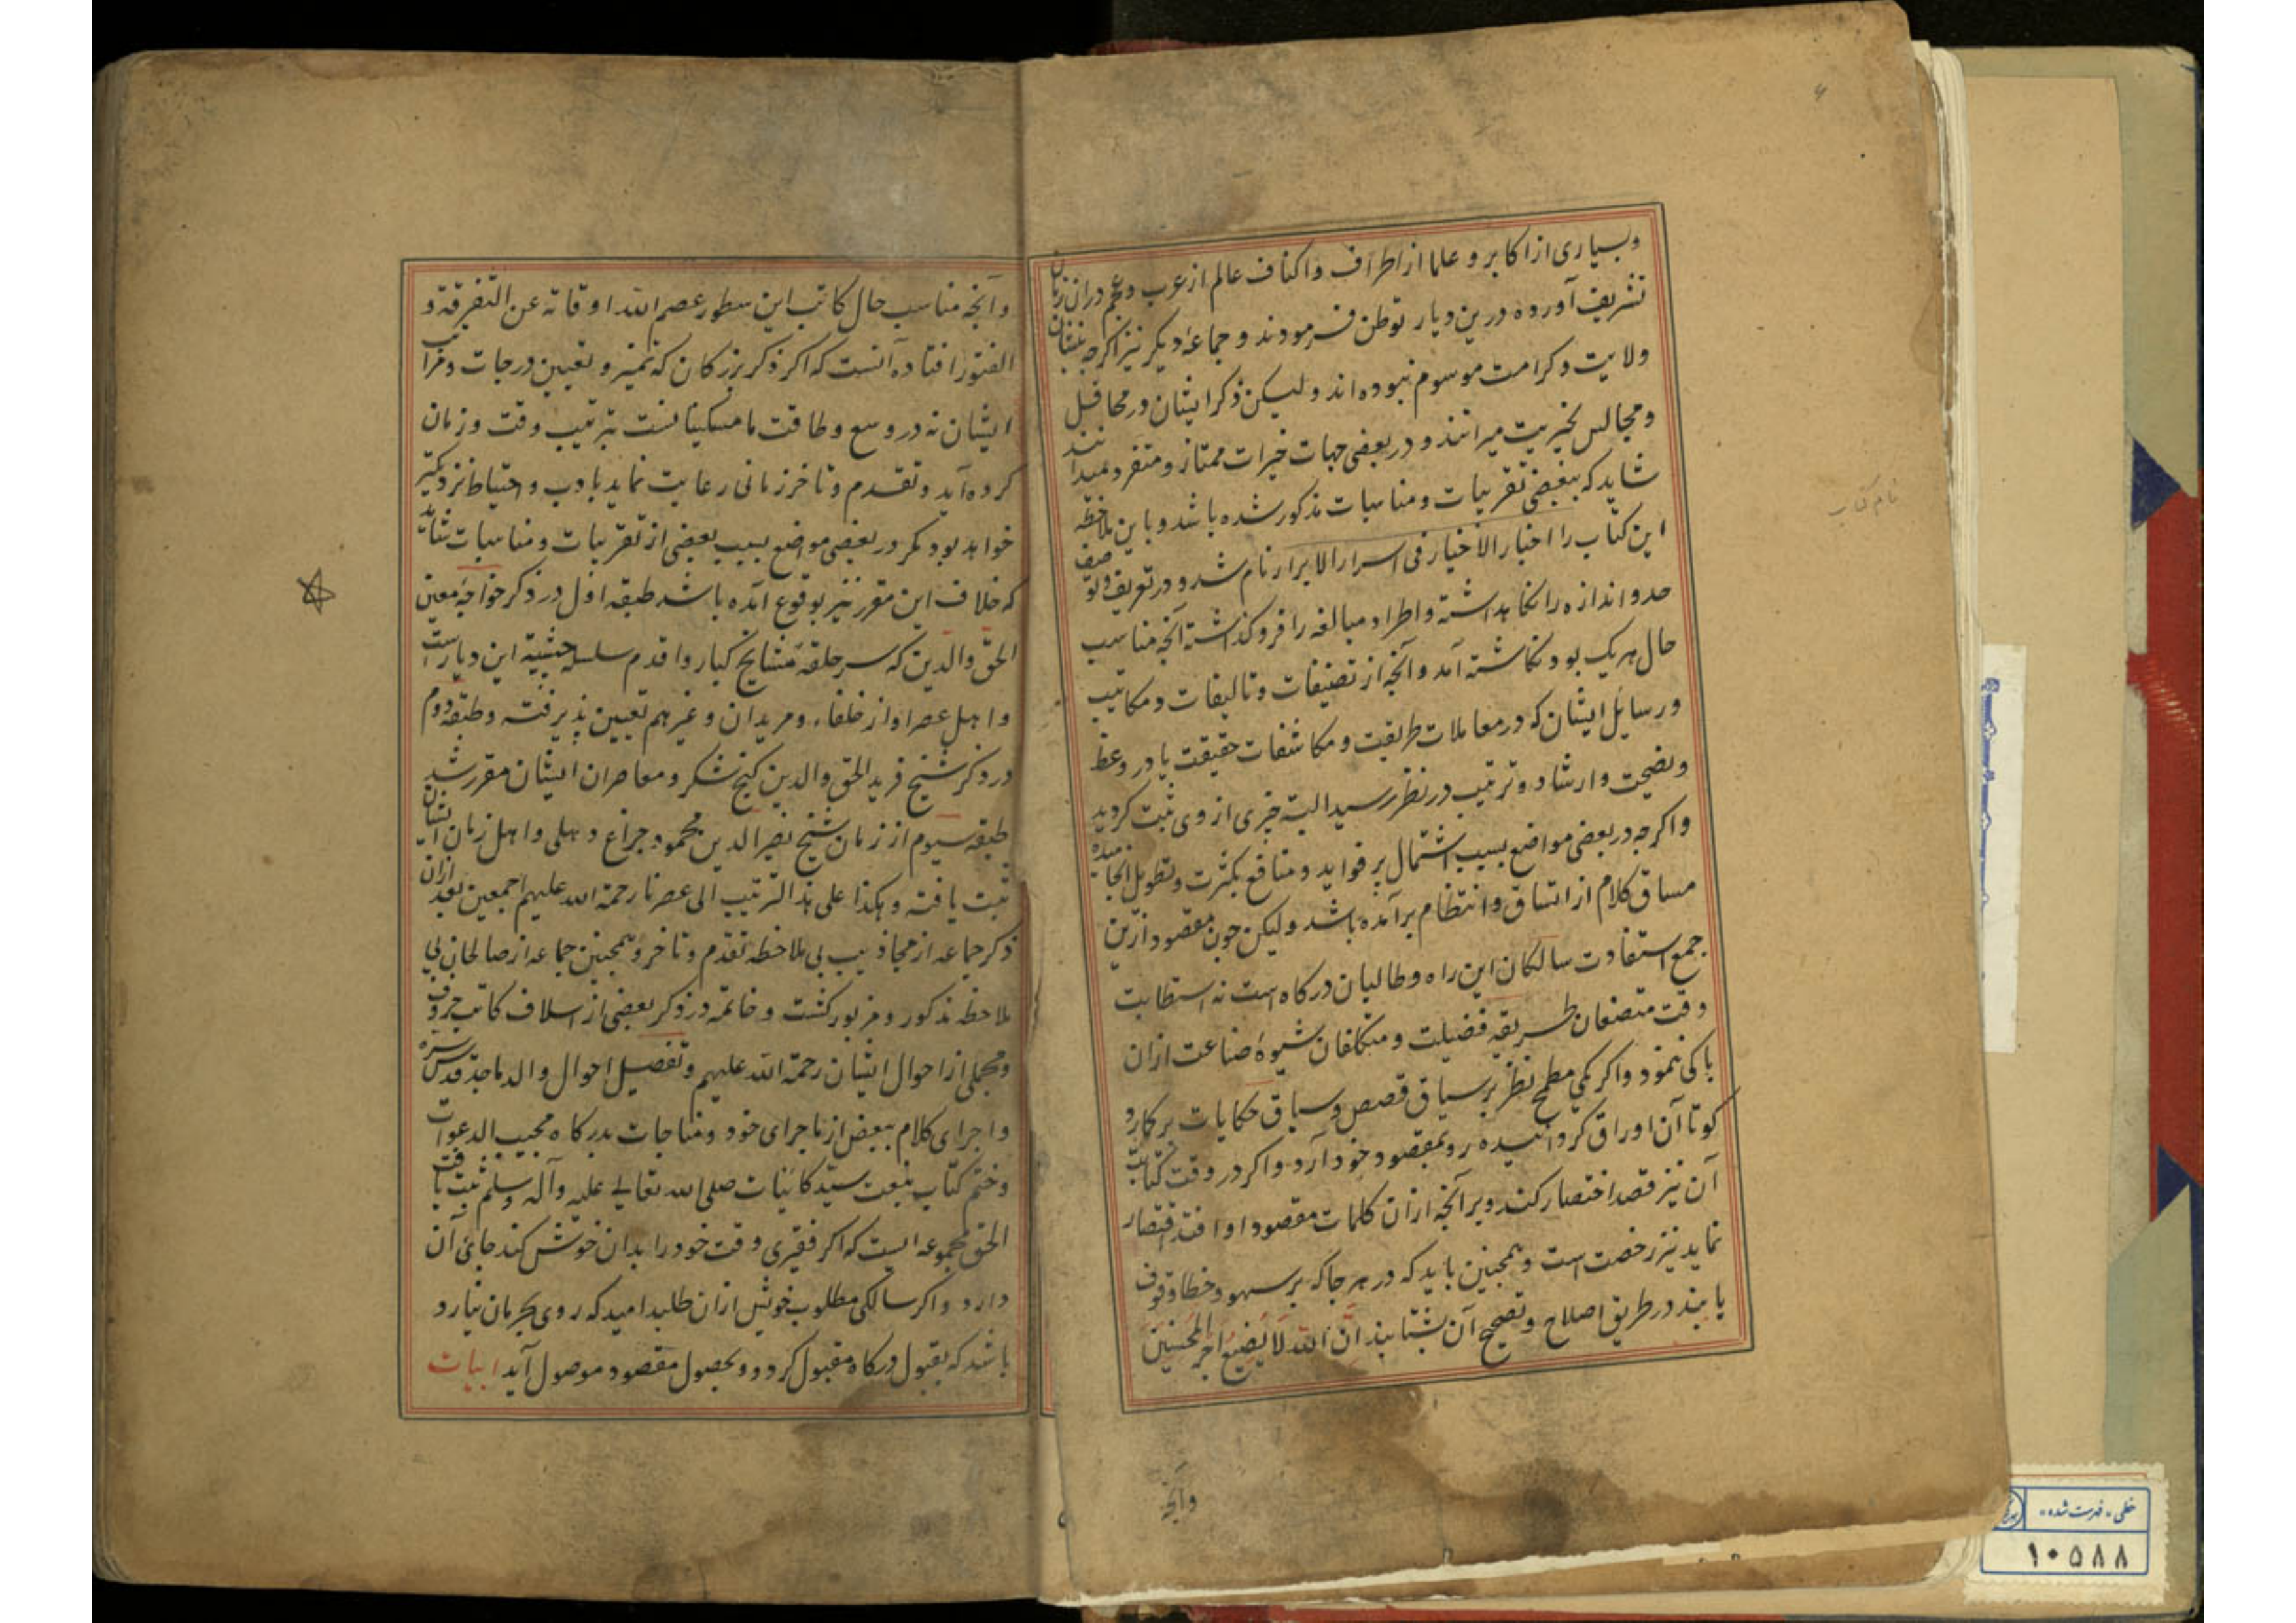 وبسیاری از اکابر و علما از اطراف و اکناف عالم از عرب و عجم دران زمان
تشریف آورده درین دیار توطن فرمودند و جماعهٔ دیکر نیز اکرچه بنشان
ولایت و کرامت موسوم نبوده اند و لیکن ذکر ایشان در محافل
و مجالس بخیریت میرانند و در بعضی جهات خیرات ممتاز و متفرد میدانند
شاید که ببعضی تقریبات و مناسبات مذکور شده باشد و باین ملاحظه
این کتاب را اخبار الاخیار فی اسرار الابرار نام شد و در تعریف و توصیف
حد و اندازه را نکاهداشته و اطراد مبالغه را فروکذاشته آنچه مناسب
حال هر یک بود نکاشته آمد و آنچه از تصنیفات و تالیفات و مکاتیب
و رسایل ایشان که در معاملات طریقت و مکاشفات حقیقت یا در وعظ
و نصیحت و ارشاد و ترتیب در نظر رسید البته چیزی از وی ثبت کردید
و اکرچه در بعضی مواضع بسبب اشتمال بر فواید و منافع بکثرت و تطویل انجامیده
مساق کلام از اتساق و انتظام برآمده باشد ولیکن چون مقصود ازین
جمع استفادت سالکان این راه و طالبان درکاه است نه استطابت
وقت متصنعان طریقه فضیلت و متکلفان شیوهٔ صناعت ازان
باکی ننمود و اکر یکی مطمح نظر بر سیاق قصص و سباق حکایات برکارد
کو تا آن اوراق کردانیده رو بمقصود خود آرد و اکر در وقت کتابت
آن نیز قصد اختصار کند و بر آنچه ازان کلمات مقصود او افتد اقتصار
نماید نیز رخصت است و همچنین باید که در هر جا که بر سهو و خطا وقوف
یابند در طریق اصلاح و تصحیح آن بشتابند اِنَّ الله لَا یُضِیعُ اَجْرَ المُحْسِنِینَ
وآنچه
نام کتاب
وآنچه مناسب حال کاتب این سطور عصم الله اوقاته عن التفرقة و
الفتور افتاده آنست که اکر ذکر بزرکان که تمیز و تعیین درجات و مراتب
ایشان نه در وسع و طاقت ما مسکینانست بترتیب وقت و زمان
کرده آید و تقدم و تاخر زمانی رعایت نماید بادب و احتیاط نزدیکتر
خواهد بود مکر در بعضی مواضع بسبب بعضی از تقریبات و مناسبات شتی
که خلاف این مقرر نیز بوقوع آمده باشد طبقه اول در ذکر خواجه معین
الحق والدین که سر حلقهٔ مشایخ کبار و اقدم سلسله چشتیهٔ این دیار است
و اهل عصر او از خلفاء و مریدان و غیرهم تعیین پذیرفته و طبقه دوم
در ذکر شیخ فرید الحق والدین کنج شکر و معاصران ایشان مقرر شد
طبقه سیوم از زمان شیخ نصیر الدین محمود چراغ دهلی و اهل زمان ایشان
ثبت یافته و هکذا علی هذا الترتیب الی عصرنا رحمة الله علیهم اجمعین بعد ازان
ذکر جماعه از مجاذیب بی ملاحظه تقدم و تاخر و همچنین جماعه از صالحان بی
ملاحظه مذکور و مزبور کشت و خاتمه در ذکر بعضی از اسلاف کاتب حروف
و مجملی از احوال ایشان رحمة الله علیهم و تفصیل احوال والد ماجد قدس سره
و اجرای کلام ببعض از ماجرای خود و مناجات بدرکاه مجیب الدعوات
و ختم کتاب بنعت سید کاینات صلی الله تعالی علیه وآله وسلم ثبت یافت
الحق مجموعه ایست که اکر فقیری وقت خود را بدان خوش کند جای آن
دارد و اکر سالکی مطلوب خویش ازان طلبد امید که روی بحرمان نیارد
باشد که بقبول درکاه مقبول کردد و بحصول مقصود موصول آید ابیات
خطی - فهرست شده -
۱۰۵۸۸